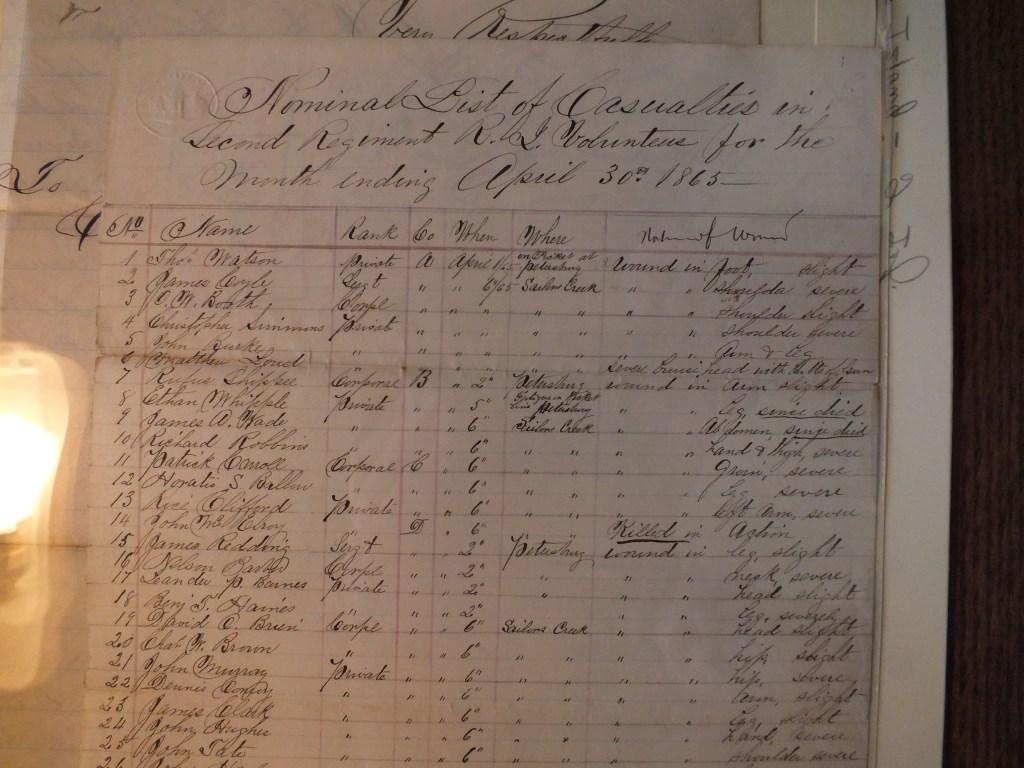 Very Respectfully
Nominal List of Casualties in
Second Regiment R. I. Volunteers for the
Month ending April 30th 1865
To
No Name Rank Co When Where Nature of Wound
1 Thos Watson Private A April 1/65 on Picket at Petersburg Wound in foot, slight
2 James Coyle Sergt " " 6/65 Sailors Creek " " shoulder severe
3 Booth, Corpl " " " " " " " shoulder slight
4 Christopher Simmons Private " " " " " " " shoulder severe
5 John " " " " " " " Arm & Leg
6 Matthew " " " " Severe bruise head with butt of Gun
7 Rufus Corporal B " 2" Petersburg wound in arm slight
8 Ethan Whipple Private " " 5" Picket line Petersburg " " Leg, since died
9 James A. Wade " " " 6" Sailors Creek " " Abdomen, since died
10 Richard Robbins " " " 6" " " " " Hand & thigh, severe
11 Patrick Carroll Corporal C " 6" " " " " Groin, severe
12 Horatio S. " " " 6" " " " " Leg severe
13 Clifford Private " " 6" " " " " left arm, severe
14 John D " 6" " " Killed in Action
15 James Redding Sergt " " 2" Petersburg wound in leg, slight
16 Nelson Corpl " " 2" " " " neck, severe
17 Leander P. Barnes Private " " 2" " " " head slight
18 Benj T. Haines " " " 2" " " " Leg, severely
19 David O Brien Corpl " " 6" Sailors Creek " " head slight
20 Chas W. Brown " " " 6" " " " " hip, slight
21 John Murray Private " " 6" " " " " hip, severe
22 Dennis " " " 6" " " " " arm, slight
23 James Clark " " " 6" " " " " Leg, slight
24 John Hughes " " " 6" " " " " hand, severe
25 John Tate " " " 6" " " " " shoulder severe
26